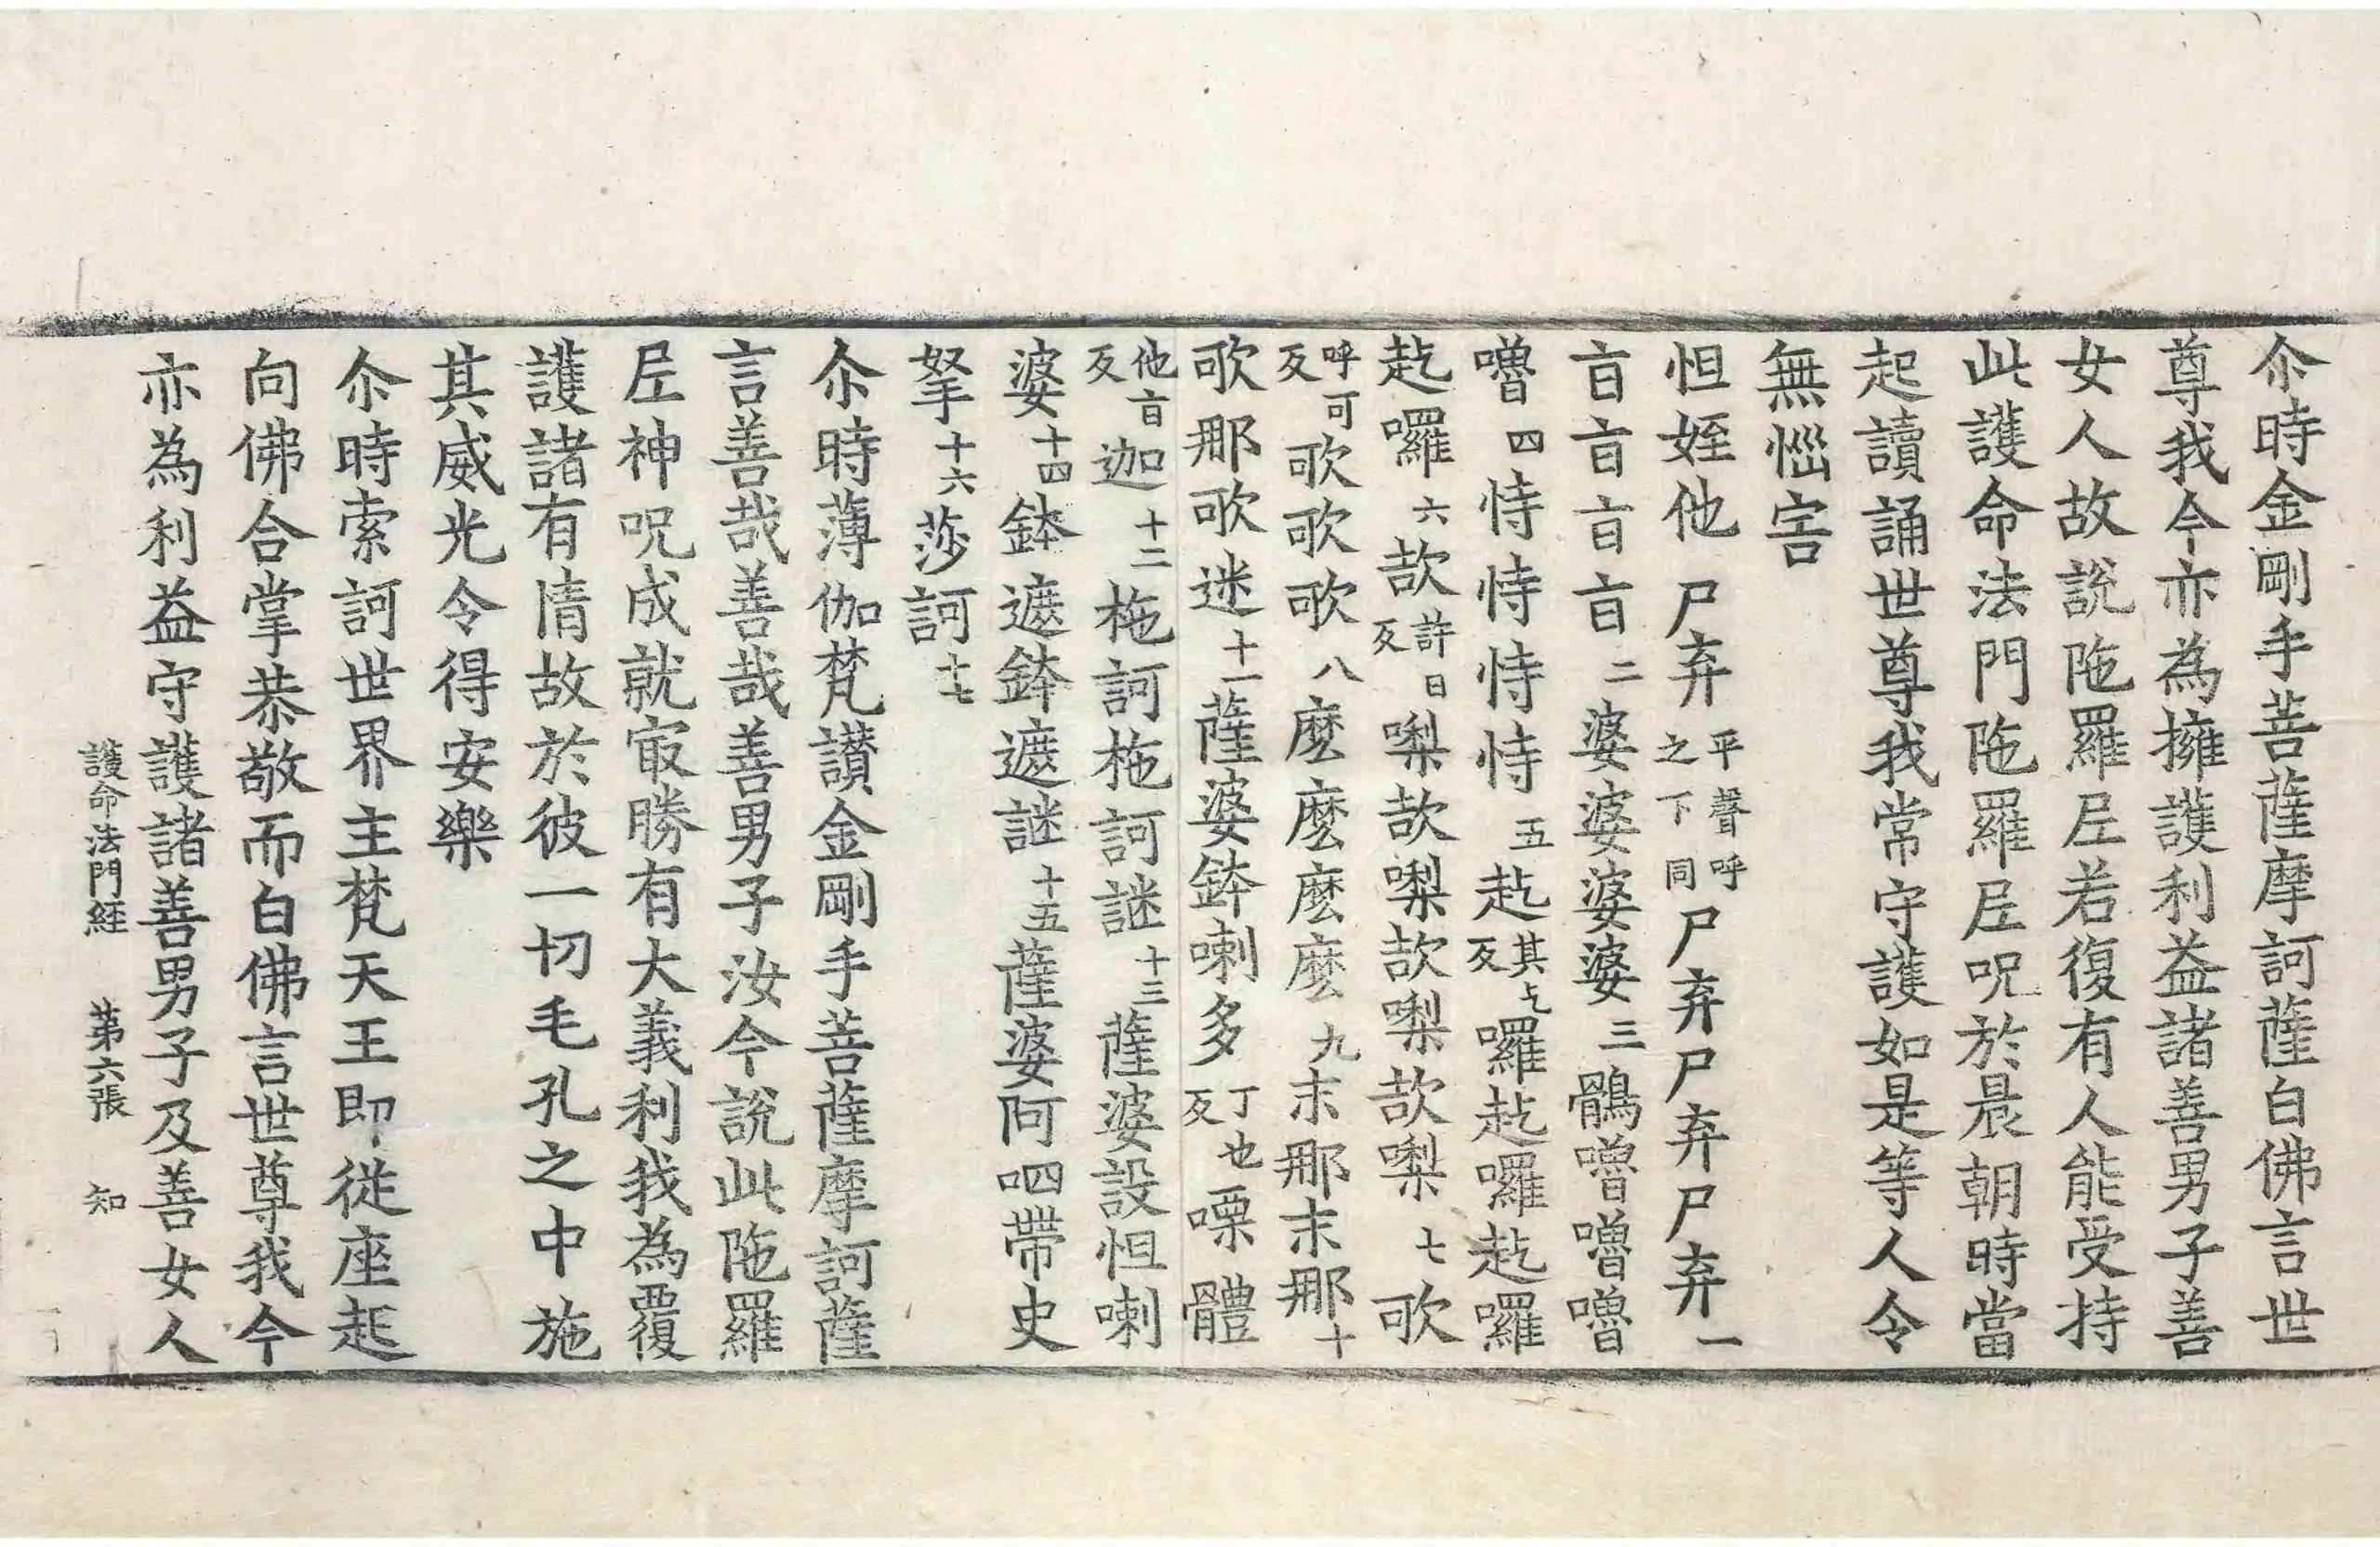 尒時金剛手菩薩摩訶薩白佛言世
尊我今亦為擁護利益諸善男子善
女人故說陁羅𡰱若復有人能受持
此護命法門陁羅𡰱呪於晨朝時當
起讀誦世尊我常守護如是等人令
無惱害
怛姪他尸弃平聲呼之下同尸弃尸弃尸弃一
亩亩亩亩二婆婆婆婆三鶻嚕嚕嚕
嚕四恃恃恃恃五趂其乞反囉趂囉趂囉
趂囉六欯許日反㗚欯㗚欯㗚欯㗚七歌
呼可反歌歌歌八麼麼麼麼九末那末那十
歌那歌迷十一薩婆鉢喇多丁也反㗚體
他亩反迦十二柂訶柂訶謎十三薩婆設怛喇
婆十四鉢遮鉢遮謎十五薩婆阿呬帶史
拏十六莎訶十七
尒時薄伽梵讃金剛手菩薩摩訶薩
言善哉善哉善男子汝今說此陁羅
𡰱神呪成就㝡勝有大義利我為覆
護諸有情故於彼一切毛孔之中施
其威光令得安樂
尒時索訶世界主梵天王即從座起
向佛合掌恭敬而白佛言世尊我今
亦為利益守護諸善男子及善女人
護命法門経　第六張　知